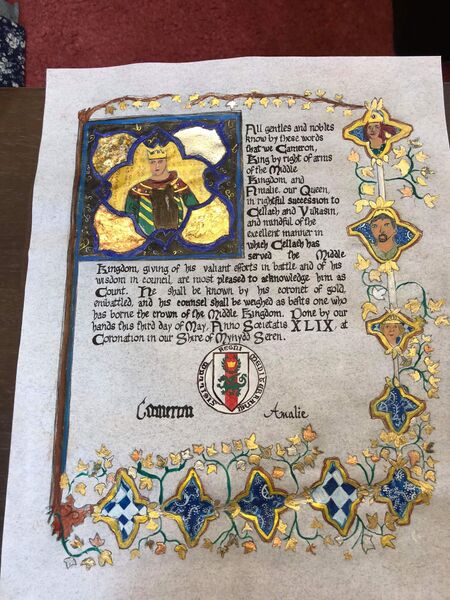 All gentles and nobles
know by these words
that we Cameron,
King by right of arms
of the Middle
Kingdom, and
Amalie, our Queen,
in rightful succession to
Cellach and Vukasin,
and mindful of the
excellent manner in
which Cellach has
served the Middle
Kingdom, giving of his valiant efforts in battle and of his
wisdom in council, are most pleased to acknowledge him as
Count. He shall be known by his coronet of gold,
embattled, and his counsel shall be weighed as befits one who
has borne the crown of the Middle Kingdom. Done by our
hands this third day of May, Anno Societatis XLIX, at
Coronation in our Shire of Mynydd Seren.
REGNI
Cameron
Amalie